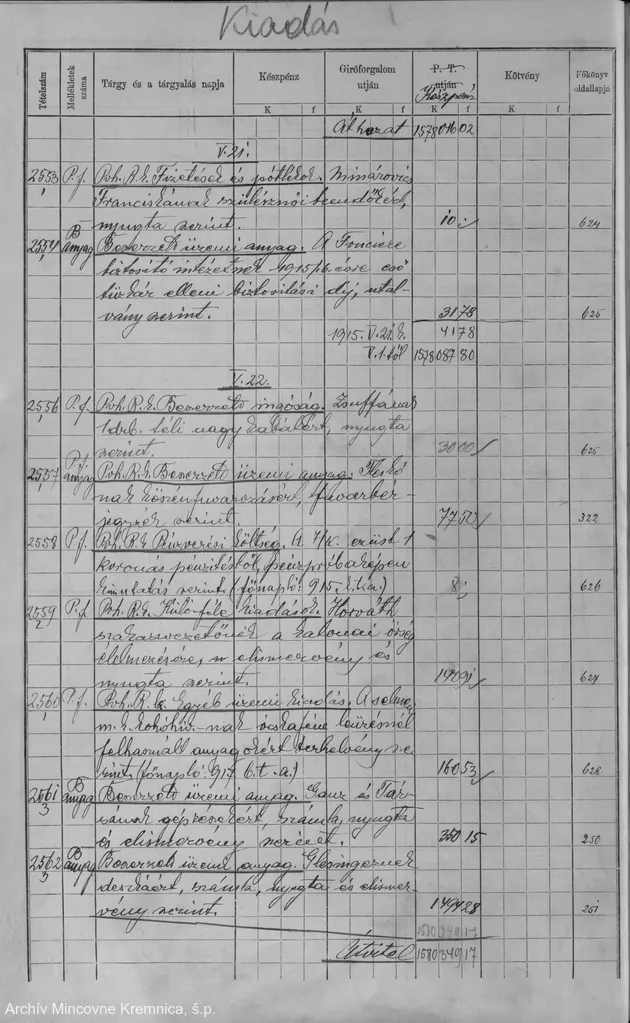 Kiadás
Tételszám
Mellékletek száma
Tárgy és a tárgyalás napja
Készpénz
Giróforgalom utján
P. T. utján
Készpénz
Kötvény
Főkönyv oldallapja
K f K f K f K f
Áthozat 1578046 02
V. 21.
2553 P.f. Poh. R.k. Fizetések és pótlékok. Minárovics
1 Franciskának szülésznői teendőkért,
nyugta szerint. 10 624
2554 B anyag Beszerzett üzemi anyag. A Fonciere
1 biztosító intézetnek 1915/16. évre eső
tűzkár elleni biztosítási díj, utal-
vány szerint. 31 78 625
1915. V. 21. 41 78
V. 1 től 1578087 80
V. 22.
2556 P.f. Poh. R.k. Beszerzett ingóság. Zsuffának
1 1 drb. téli nagy kabátért, nyugta
szerint. 30 00 625
2557 P.f. anyag Poh. R.k. Beszerzett üzemi anyag.
1 nak kőszénfuvarozásért, fuvarbér-
jegyzék szerint. 77 50 322
2558 P.f. Poh. R.k. Pénzverési költség. A 7/k. ezüst 1
1 koronás pénzítéstől, pénzpróbaképen
kimutatás szerint (főnapló: 915. t.t.a.) 8 626
2559 P.f. Poh. R.k. Külö-féle kiadások. Horváth
2 szakaszvezetőnek a katonai őrség
élelmezésére, elismervény és
nyugta szerint. 627
2560 P.f. Poh. R.k. Egyéb üzemi kiadás. A selm.
1 m. k. kohóhiv.-nak
felhasznált anyagokért terhelvény sze-
rint. (főnapló: 917. 6. t. a.) 160 53 628
2561 B anyag Beszerzett üzemi anyag. Ganz és Tár-
3 sának géprészekért, számla, nyugta
és elismervény szerint. 350 15 250
2562 B anyag Beszerzett üzemi anyag. Glesingernek
3 deszkáért, számla, nyugta és elismer-
vény szerint. 1494 28 251
1580349 17
Átvitel 1580349 17
Archív Mincovne Kremnica, š.p.